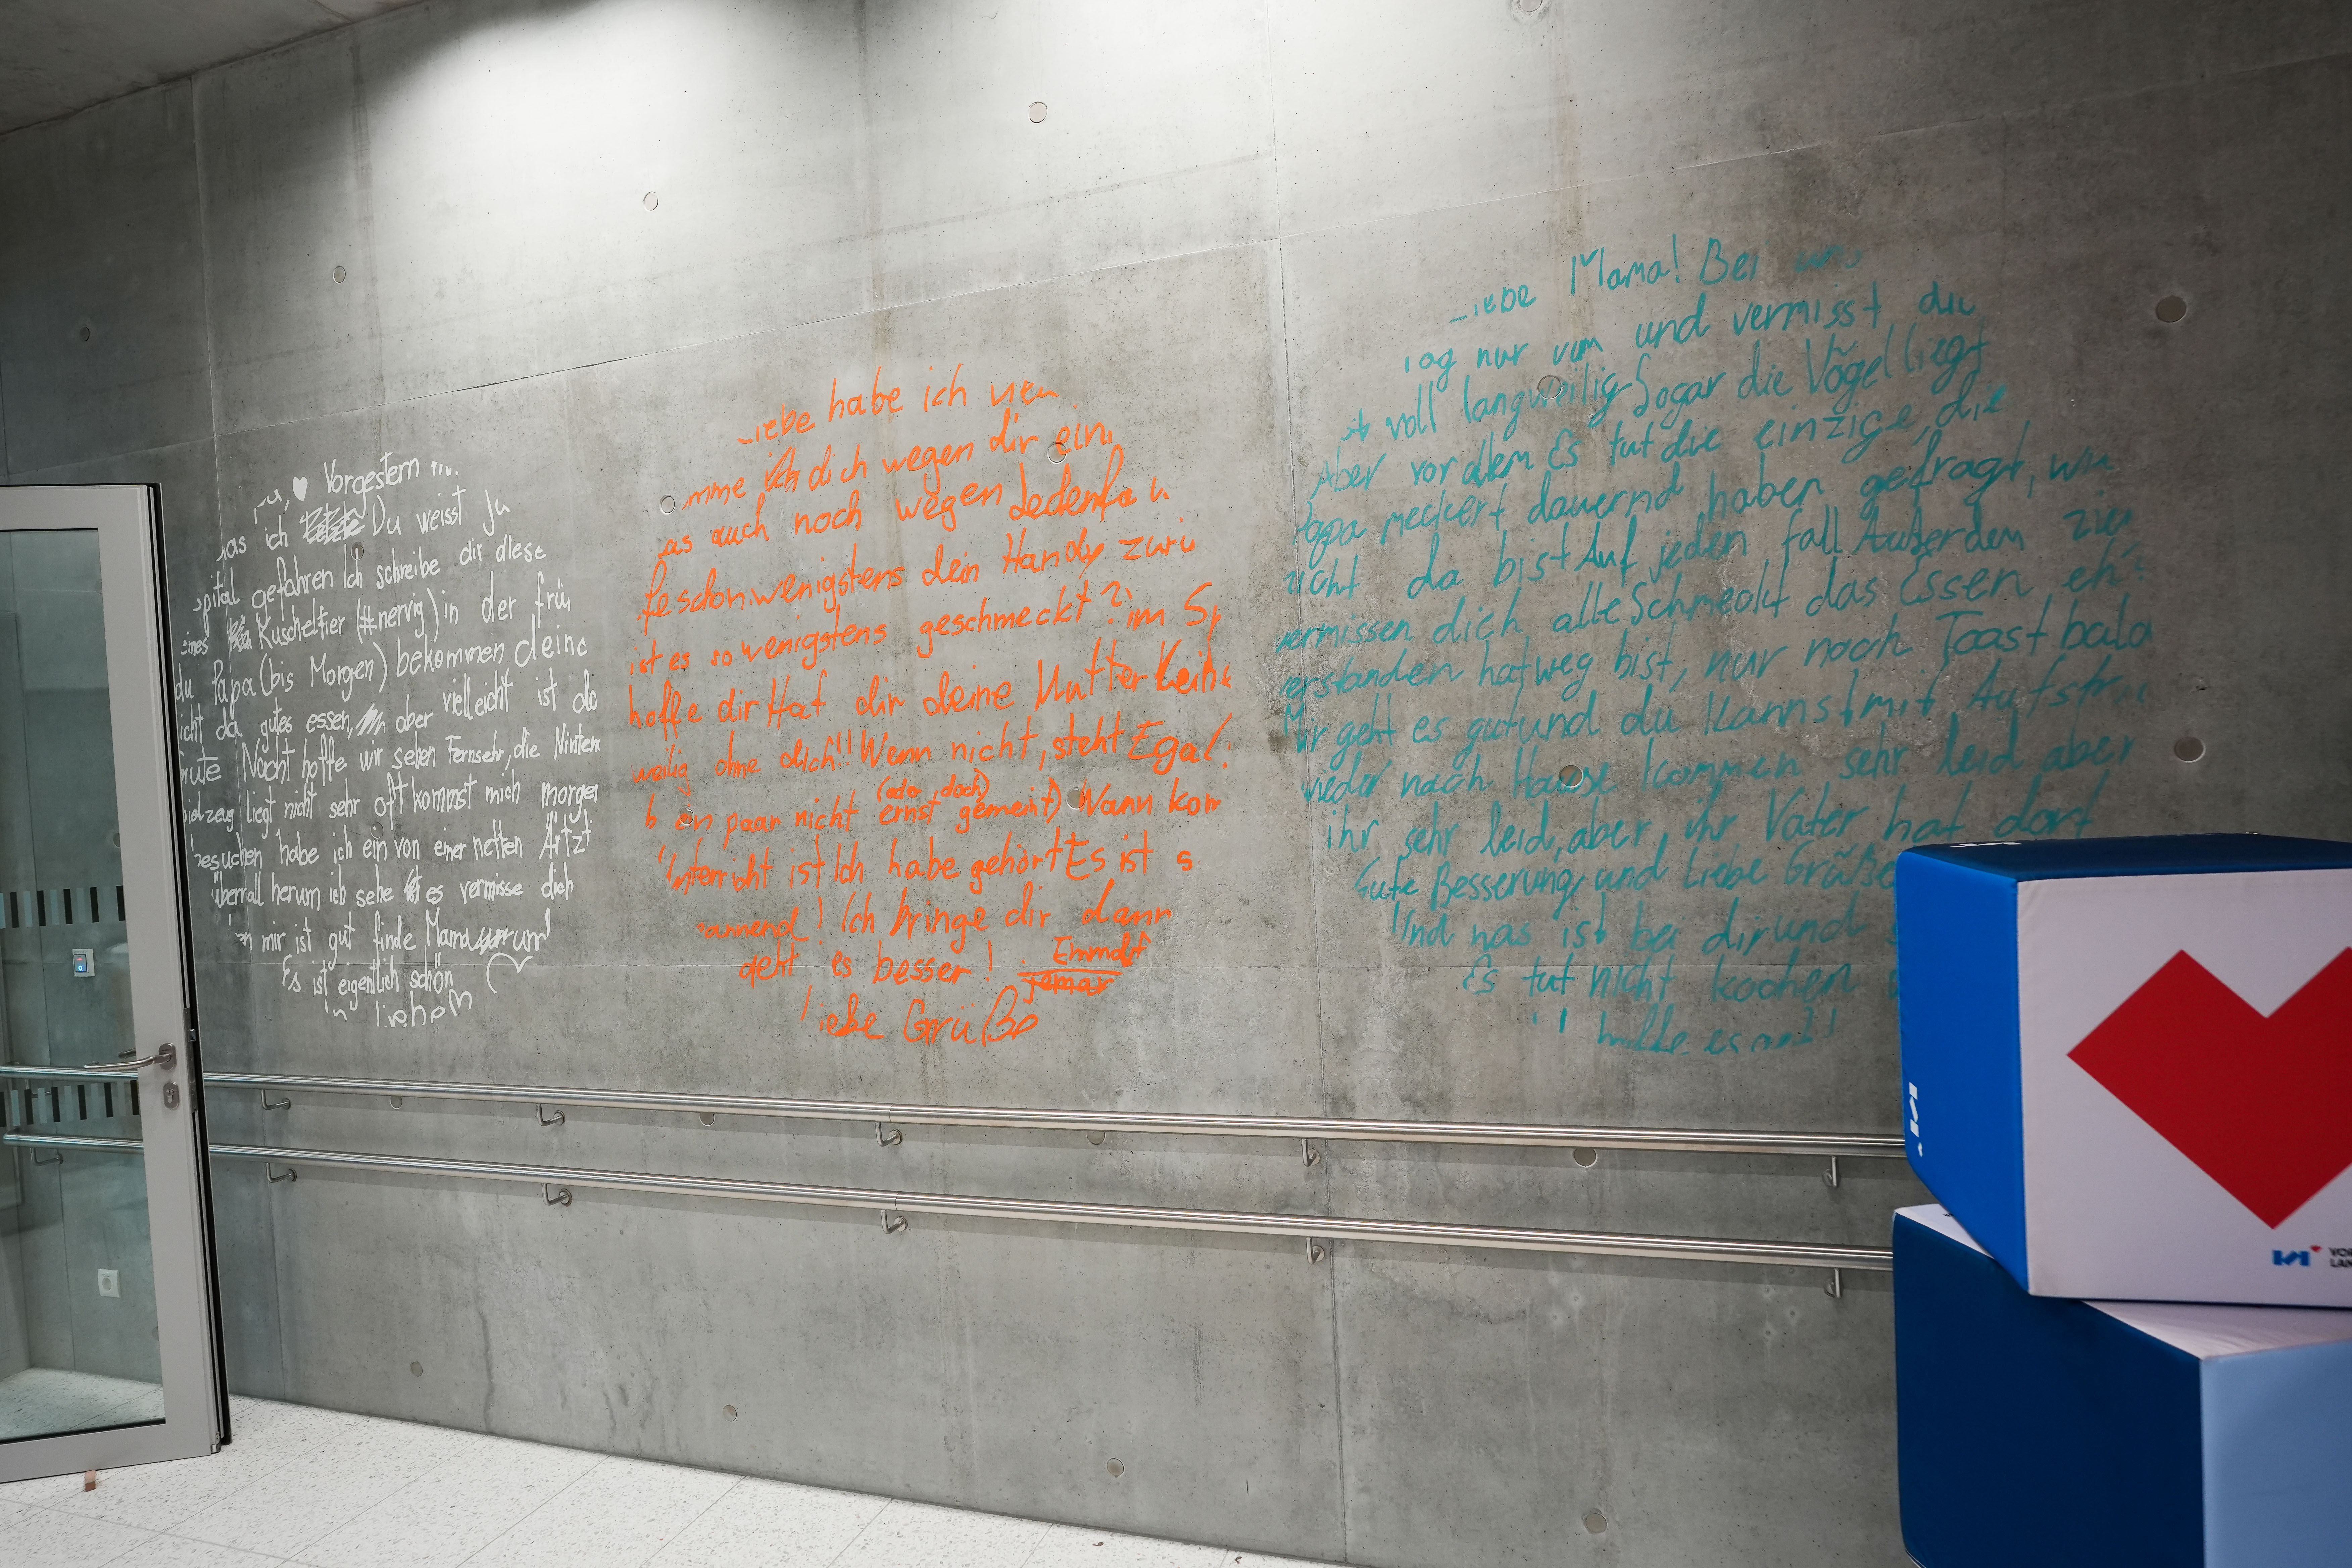 Vorgestern
ich Du weisst ja
gefahren Ich schreibe dir diese
Kuscheltier (#nervig) in der frü
du Papa (bis Morgen) bekommen deine
icht da gutes essen, aber vielleicht ist do
Nacht hoffe wir sehen Fernsehr, die Ninten
ielzeug liegt nicht sehr oft kommst mich morgen
besuchen habe ich ein von einer netten Ärtzt
überrall herum ich sehe es vermisse dich
mir ist gut finde Mama
Es ist eigentlich schön
in liebe
iebe habe ich
mme ich dich wegen dir ein
as auch noch wegen Jedenfa
fe schon wenigstens dein Handy zurü
ist es so wenigstens geschmeckt? im Sp
hoffe dir Hat dir deine Mutter keine
weilig ohne dich!! Wenn nicht, steht Egal.
(oder doch)
b ein paar nicht ernst gemeint) Wann kom
nterricht ist Ich habe gehört Es ist s
annend! Ich bringe dir dann
geht es besser! Emmal
jemar
liebe Grüße
iebe Mama! Bei uns
Tag nur vom und vermisst du
ist voll langweilig Sogar die Vögel liegt
Aber vor allem Es tut die einzige, die
Papa meckert dauernd haben gefragt, wie
nicht da bist Auf jeden fall Außerdem zie
vermissen dich alle Schmeckt das Essen eh?
verstanden hat weg bist, nur noch Toast bald
Mir geht es gut und du kannst mit Aufstr
wieder nach Hause kommen sehr leid aber
ihr sehr leid, aber ihr Vater hat dort
Gute Besserung, und Liebe Grüße
Und was ist bei dir und
Es tut nicht kochen